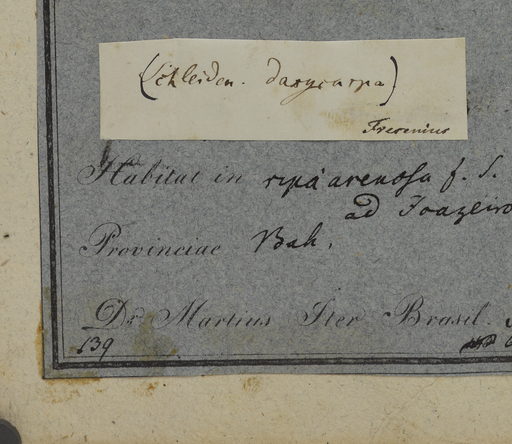 (Schleiden. dasycarpa)
Fresenius
Habitat in ripa arenosa f. S.
ad Joazeiro
Provinciae Bah.
Dr. Martius Iter Brasil.
139